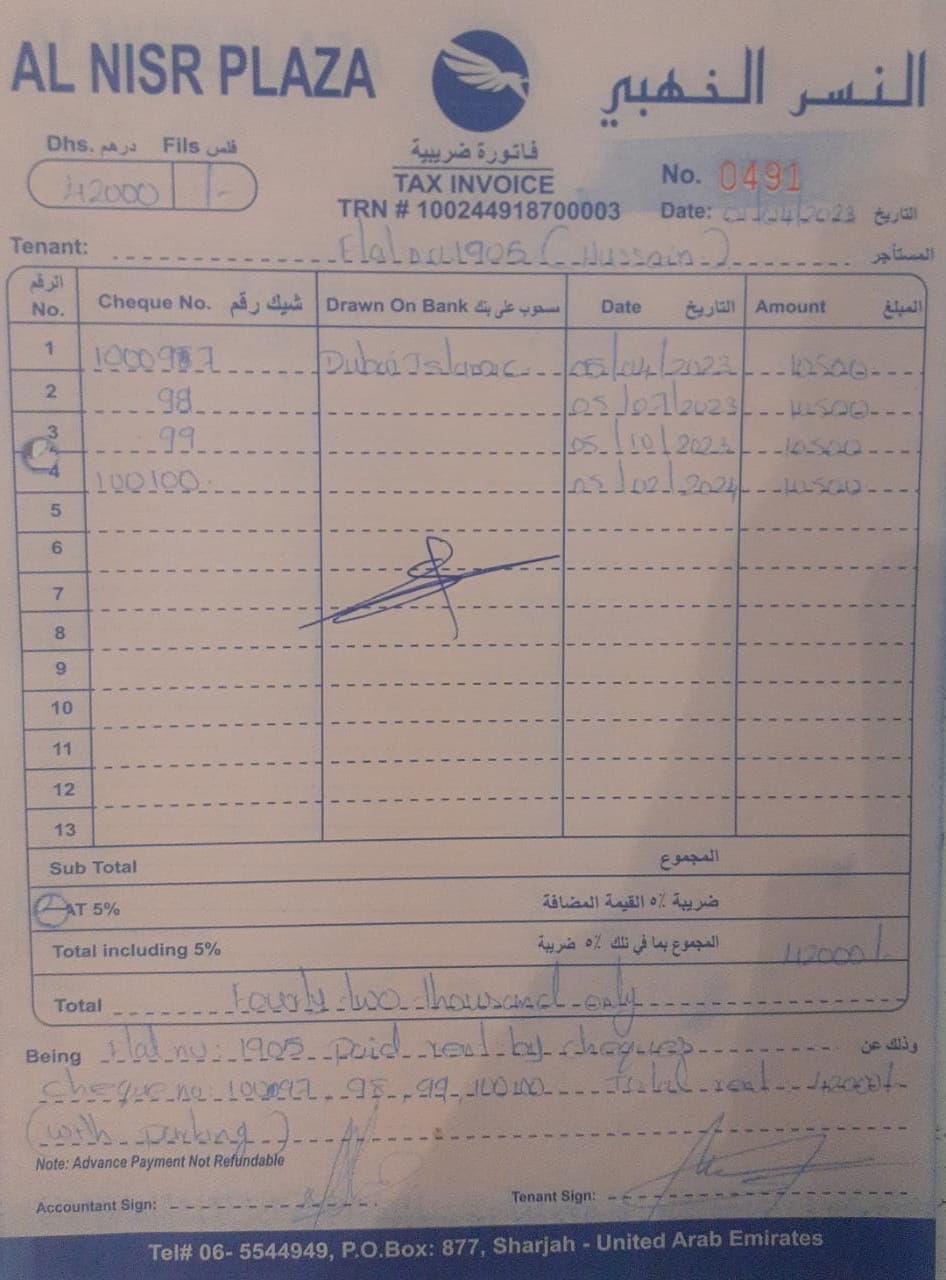 AL NISR PLAZA
النسر الذهبي
Dhs. درهم Fils فلس
42000 /-
فاتورة ضريبية
TAX INVOICE
TRN # 100244918700003
No. 0491
Date: 01/04/2023 التاريخ
Tenant: Flat no 1905 (Hussain) المستأجر
الرقم No. Cheque No. شيك رقم Drawn On Bank مسحوب على بنك Date التاريخ Amount المبلغ
1 1000987 Dubai Islamic 05/04/2023 10500
2 98 05/07/2023 10500
3 99 05/10/2023 10500
4 100100 05/02/2024 10500
5
6
7
8
9
10
11
12
13
Sub Total المجموع
VAT 5% ضريبة ٥٪ القيمة المضافة
Total including 5% المجموع بما في تلك ٥٪ ضريبة 42000/-
Total Fourty two thousand only
Being Flat no: 1905 paid rent by cheques وذلك عن
Cheque no: 100097, 98, 99, 100100 Total rent 42000/-
(with parking)
Note: Advance Payment Not Refundable
Accountant Sign: Tenant Sign:
Tel# 06- 5544949, P.O.Box: 877, Sharjah - United Arab Emirates